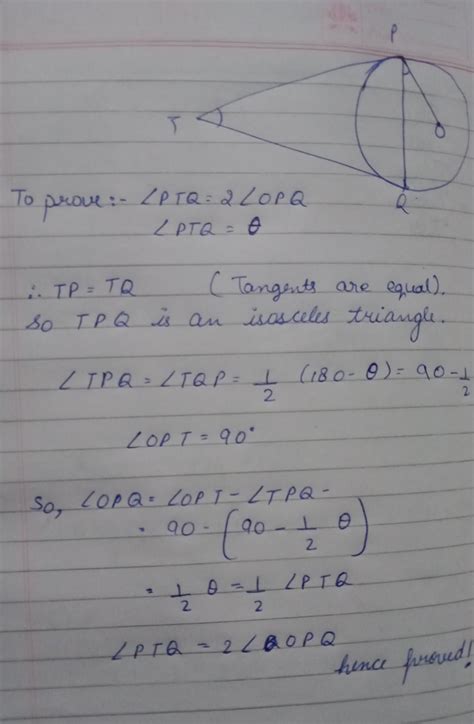 P
T
O
Q
To prove:- ∠PTQ = 2∠OPQ
∠PTQ = θ
∴ TP = TQ (Tangents are equal).
So TPQ is an isosceles triangle.
∠TPQ = ∠TQP = 1/2 (180 - θ) = 90 - 1/2
∠OPT = 90°
So, ∠OPQ = ∠OPT - ∠TPQ -
= 90 - (90 - 1/2 θ)
= 1/2 θ = 1/2 ∠PTQ
∠PTQ = 2∠OPQ
hence proved!